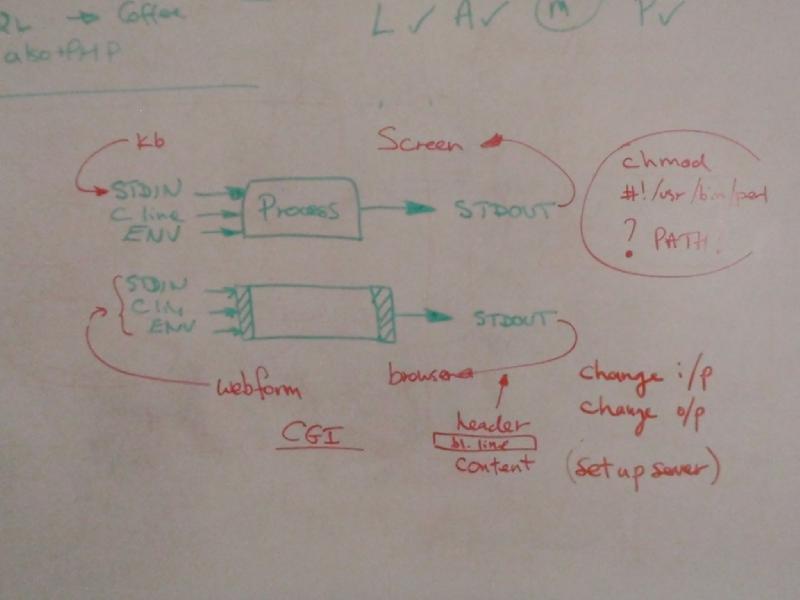 → Coffee
also + PHP
L ✓ A ✓ M P ✓
kb
Screen
STDIN
C line
ENV
Process
STDOUT
chmod
#!/usr/bin/perl
? PATH
STDIN
C lin
ENV
STDOUT
webform
browser
CGI
header
bl. line
content
change i/p
change o/p
(set up server)